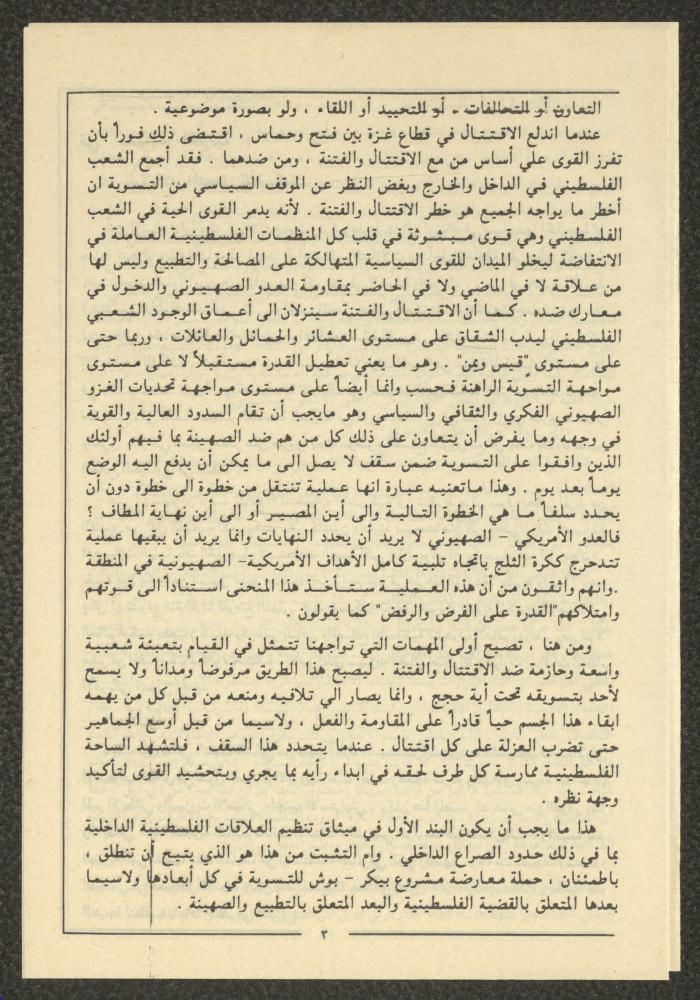 التعاون أو التحالفات ـ أو التحييد أو اللقاء ، ولو بصورة موضوعية .
عندما اندلع الاقتتال في قطاع غزة بين فتح وحماس ، اقتضى ذلك فوراً بأن
تفرز القوى علي أساس من مع الاقتتال والفتنة ، ومن ضدهما . فقد أجمع الشعب
الفلسطيني في الداخل والخارج وبغض النظر عن الموقف السياسي من التسوية ان
أخطر ما يواجه الجميع هو خطر الاقتتال والفتنة . لأنه يدمر القوى الحية في الشعب
الفلسطيني وهي قوى مبثوثة في قلب كل المنظمات الفلسطينية العاملة في
الانتفاضة ليخلو الميدان للقوى السياسية المتهالكة على المصالحة والتطبيع وليس لها
من علاقة لا في الماضي ولا في الحاضر بمقاومة العدو الصهيوني والدخول في
معارك ضده . كما أن الاقتتال والفتنة سينزلان الى أعماق الوجود الشعبي
الفلسطيني ليدب الشقاق على مستوى العشائر والحمائل والعائلات ، وربما حتى
على مستوى "قيس ويمن" . وهو ما يعني تعطيل القدرة مستقبلاً لا على مستوى
مواجهة التسوية الراهنة فحسب وانما أيضاً على مستوى مواجهة تحديات الغزو
الصهيوني الفكري والثقافي والسياسي وهو مايجب أن تقام السدود العالية والقوية
في وجهه وما يفرض أن يتعاون على ذلك كل من هم ضد الصهينة بما فيهم أولئك
الذين وافقوا على التسوية ضمن سقف لا يصل الى ما يمكن أن يدفع اليه الوضع
يوماً بعد يوم . وهذا ماتعنيه عبارة انها عملية تنتقل من خطوة الى خطوة دون أن
يحدد سلفاً ما هي الخطوة التالية والى أين المصير أو الى أين نهاية المطاف ؟
فالعدو الأمريكي - الصهيوني لا يريد أن يحدد النهايات وانما يريد أن يبقيها عملية
تتدحرج ككرة الثلج باتجاه تلبية كامل الأهداف الأمريكية- الصهيونية في المنطقة
.وانهم واثقون من أن هذه العملية ستأخذ هذا المنحنى استناداً الى قوتهم
وامتلاكهم"القدرة على الفرض والرفض" كما يقولون .
ومن هنا ، تصبح أولى المهمات التي تواجهنا تتمثل في القيام بتعبئة شعبية
واسعة وحازمة ضد الاقتتال والفتنة . ليصبح هذا الطريق مرفوضاً ومداناً ولا يسمح
لأحد بتسويقه تحت أية حجج ، وانما يصار الي تلافيه ومنعه من قبل كل من يهمه
ابقاء هذا الجسم حياً قادراً على المقاومة والفعل ، ولاسيما من قبل أوسع الجماهير
حتى تضرب العزلة على كل اقتتال . عندما يتحدد هذا السقف ، فلتشهد الساحة
الفلسطينية ممارسة كل طرف لحقه في ابداء رأيه بما يجري وبتحشيد القوى لتأكيد
وجهة نظره .
هذا ما يجب أن يكون البند الأول في ميثاق تنظيم العلاقات الفلسطينية الداخلية
بما في ذلك حدود الصراع الداخلي . وام التثبت من هذا هو الذي يتيح أن تنطلق ،
باطمئنان ، حملة معارضة مشروع بيكر - بوش للتسوية في كل أبعادها ولاسيما
بعدها المتعلق بالقضية الفلسطينية والبعد المتعلق بالتطبيع والصهينة .
٣